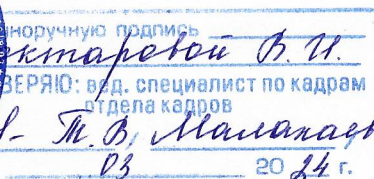 норучную подпись
ектаровой В. И.
ВЕРЯЮ: вед. специалист по кадрам
отдела кадров
Т. В. Малахаев
03 2024 г.